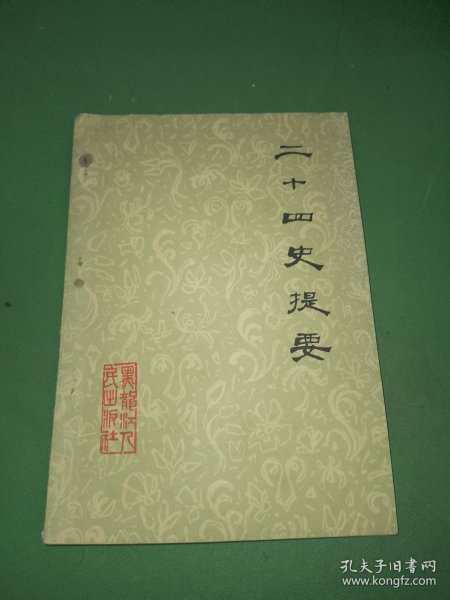 二十四史提要
黑龙江人
民出版社
孔夫子旧书网
www.kongfz.com